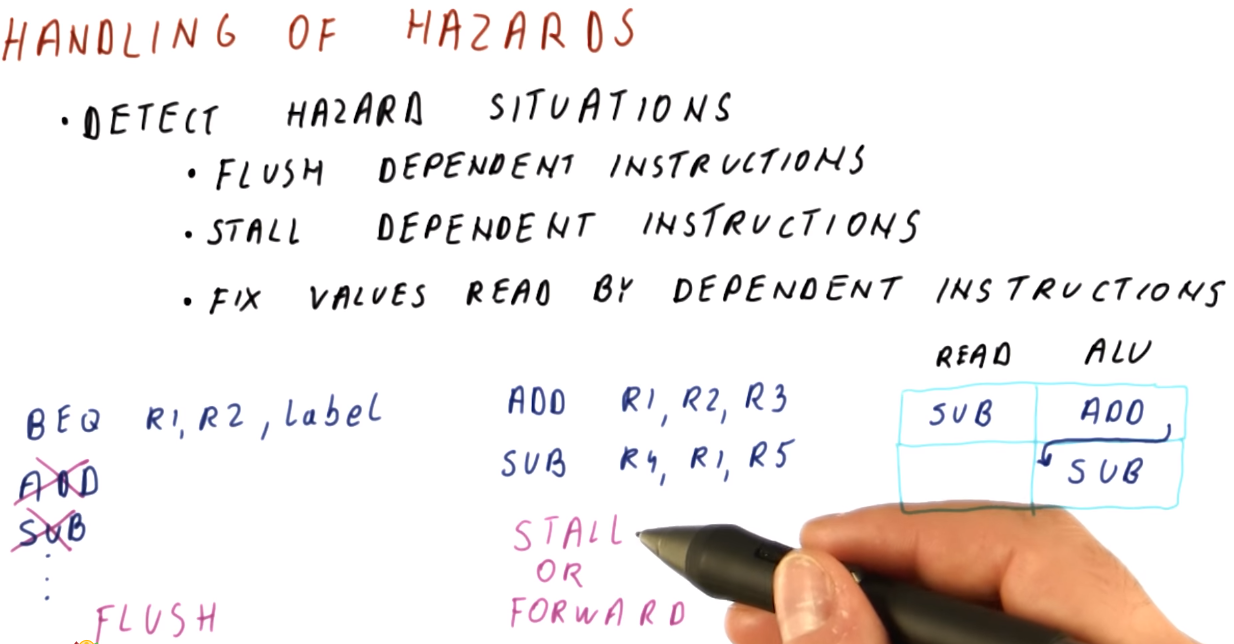 HANDLING OF HAZARDS
• DETECT HAZARD SITUATIONS
• FLUSH DEPENDENT INSTRUCTIONS
• STALL DEPENDENT INSTRUCTIONS
• FIX VALUES READ BY DEPENDENT INSTRUCTIONS
BEQ R1, R2, Label
ADD
SUB
⋮
FLUSH
ADD R1, R2, R3
SUB R4, R1, R5
STALL
OR
FORWARD
READ ALU
SUB ADD
SUB